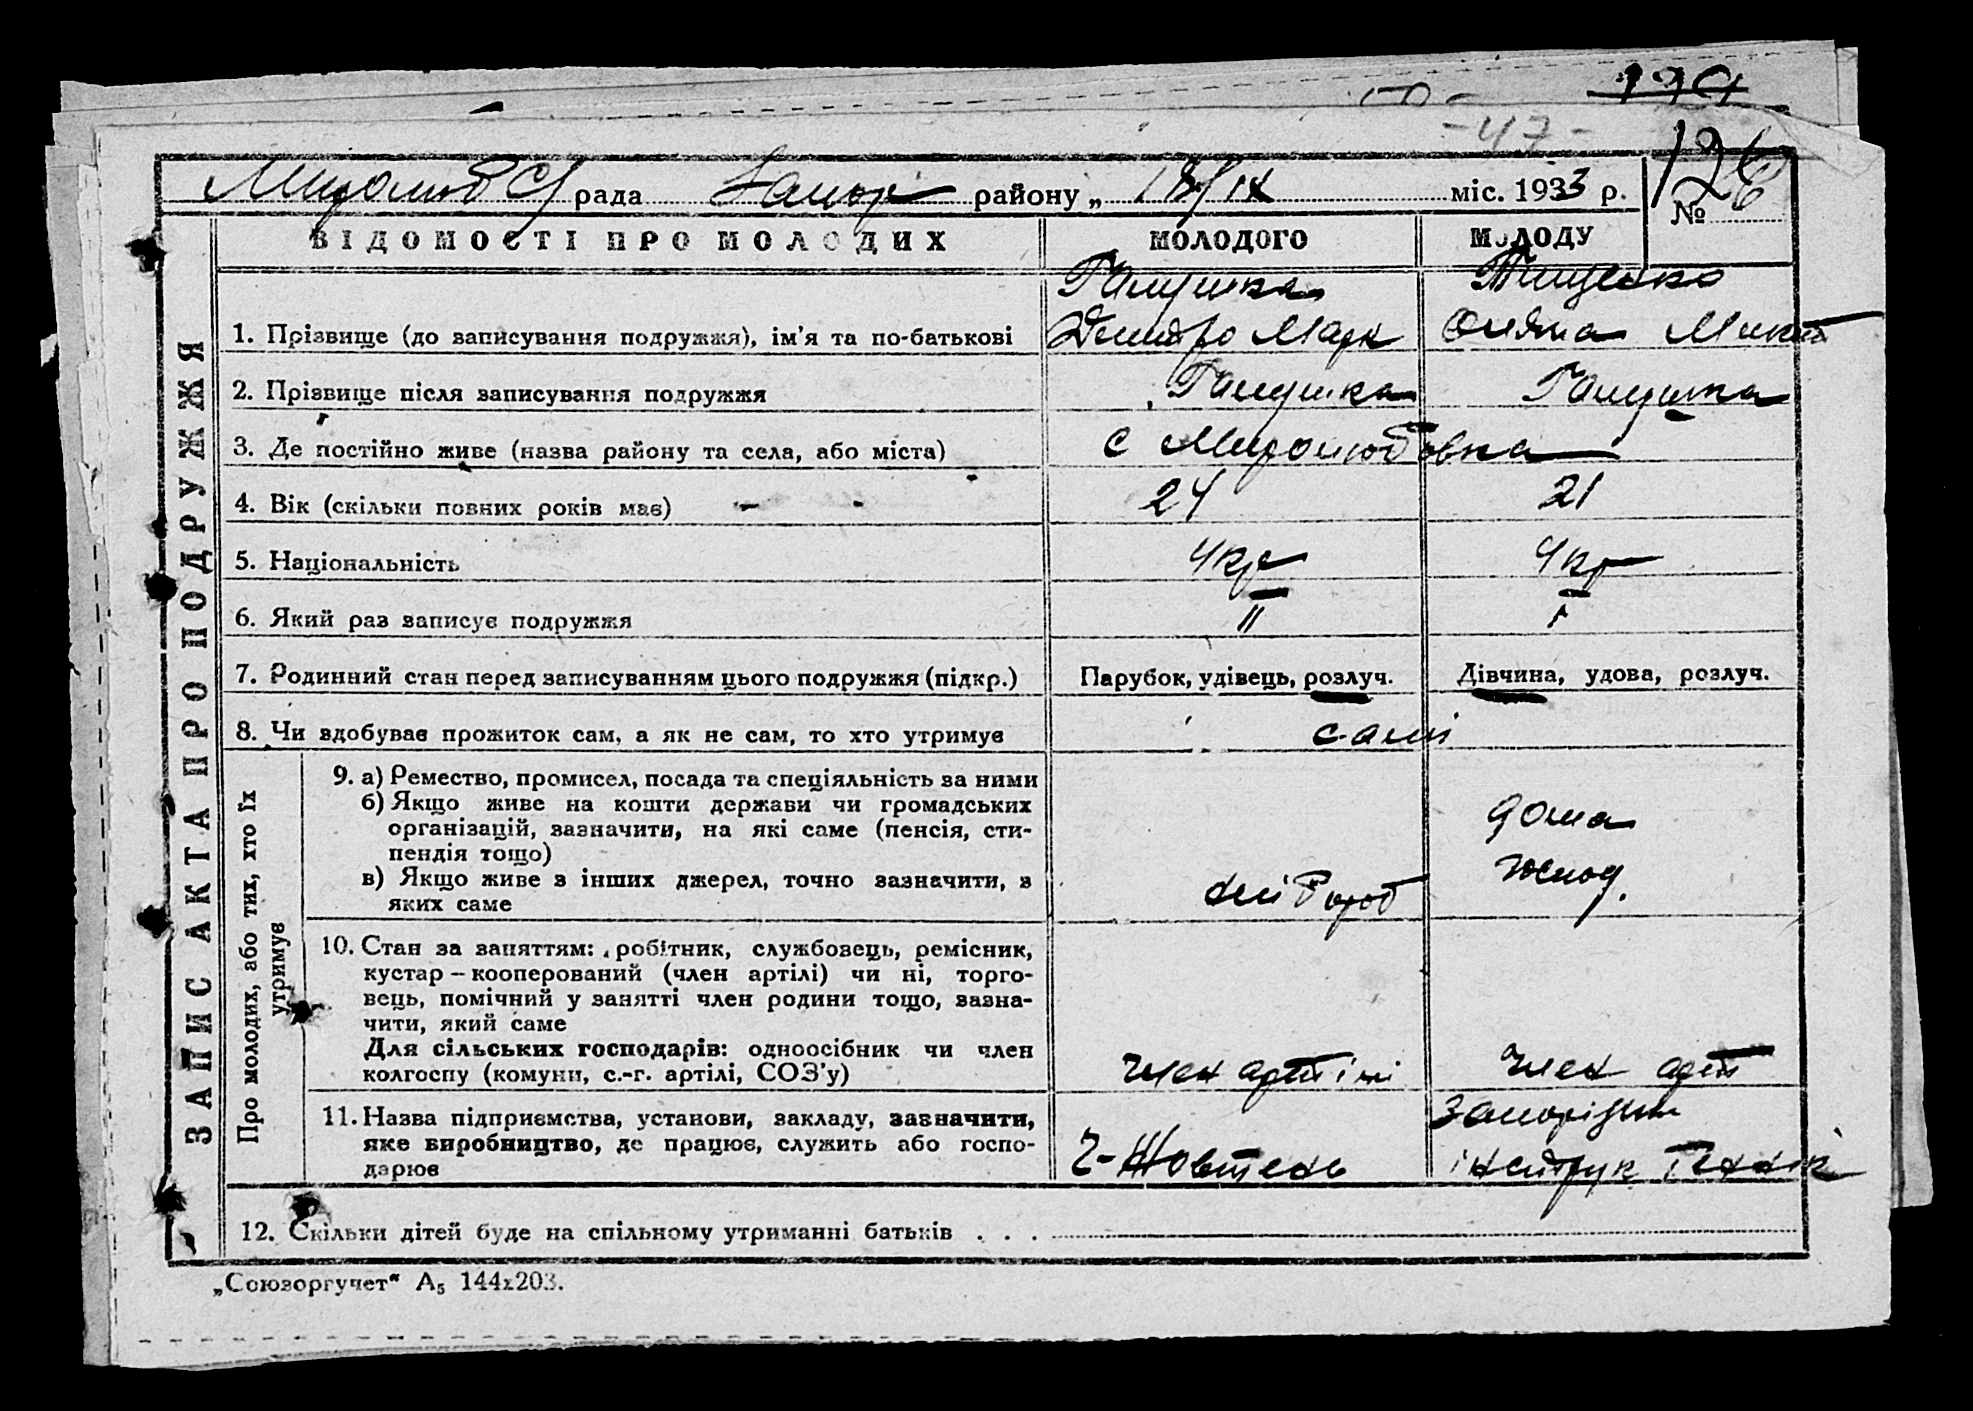 194
-47-
126
Миролюб С/рада Запор району „ 18/IX міс. 1933 р. №
ВІДОМОСТІ ПРО МОЛОДИХ МОЛОДОГО МОЛОДУ
ЗАПИС АКТА ПРО ПОДРУЖЖЯ
Галушка Тищенко
1. Прізвище (до записування подружжя), ім’я та по-батькові Дмитро Марк Микит
2. Прізвище після записування подружжя Галушка Галушка
3. Де постійно живе (назва району та села, або міста) с Миролюбовка
4. Вік (скільки повних років має) 24 21
5. Національність Укр Укр
6. Який раз записує подружжя II I
7. Родинний стан перед записуванням цього подружжя (підкр.) Парубок, удівець, розлуч. Дівчина, удова, розлуч.
8. Чи здобуває прожиток сам, а як не сам, то хто утримує самі
Про молодих, або тих, хто їх
утримує
9. а) Ремество, промисел, посада та спеціяльність за ними
б) Якщо живе на кошти держави чи громадських дома
організацій, зазначити, на які саме (пенсія, сти-
пендія тощо)
в) Якщо живе з інших джерел, точно зазначити, з
яких саме
10. Стан за заняттям: робітник, службовець, ремісник,
кустар – кооперований (член артілі) чи ні, торго-
вець, помічний у занятті член родини тощо, зазна-
чити, який саме
Для сільських господарів: одноосібник чи член
колгоспу (комуни, с.-г. артілі, СОЗ’у) член артілі член арт
11. Назва підприємства, установи, закладу, зазначити,
яке виробництво, де працює, служить або госпо-
дарює Жовтень
12. Скільки дітей буде на спільному утриманні батьків . . .
„Союзоргучет“ А₅ 144х203.